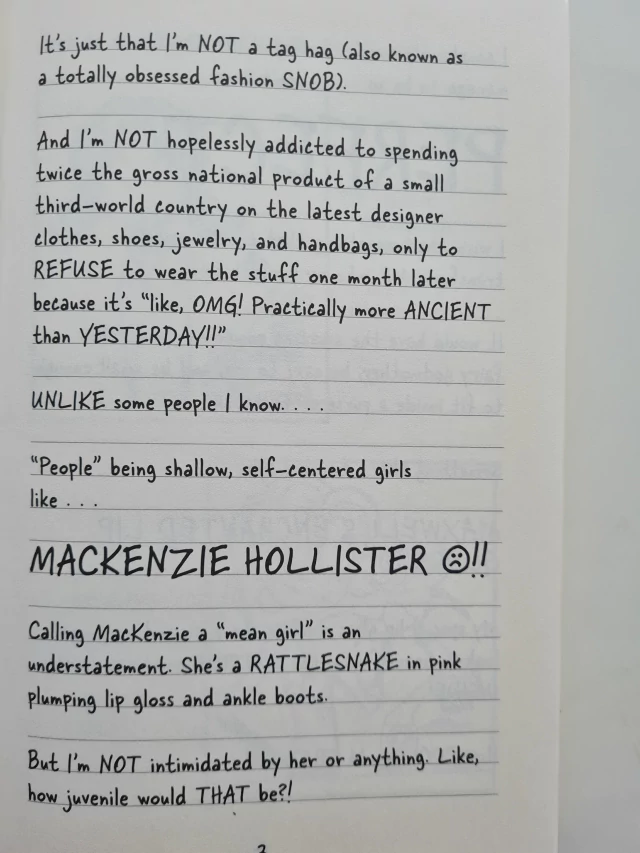 It's just that I'm NOT a tag hag (also known as
a totally obsessed fashion SNOB).
And I'm NOT hopelessly addicted to spending
twice the gross national product of a small
third-world country on the latest designer
clothes, shoes, jewelry, and handbags, only to
REFUSE to wear the stuff one month later
because it's "like, OMG! Practically more ANCIENT
than YESTERDAY!!"
UNLIKE some people I know. . . .
"People" being shallow, self-centered girls
like . . .
MACKENZIE HOLLISTER ☹!!
Calling MacKenzie a "mean girl" is an
understatement. She's a RATTLESNAKE in pink
plumping lip gloss and ankle boots.
But I'm NOT intimidated by her or anything. Like,
how juvenile would THAT be?!